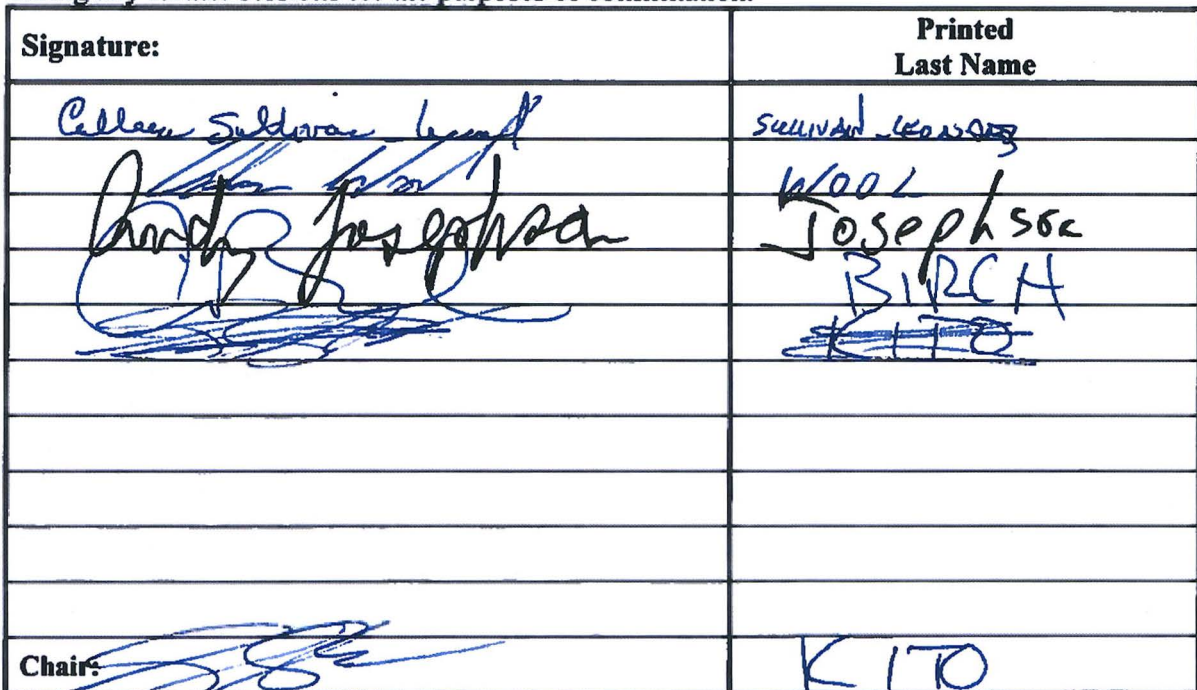 Signature: Printed
Last Name
Colleen Sullivan-Leonard SULLIVAN-LEONARD
WOOL
Andy Josephson Josephson
BIRCH
KITO
Chair: KITO